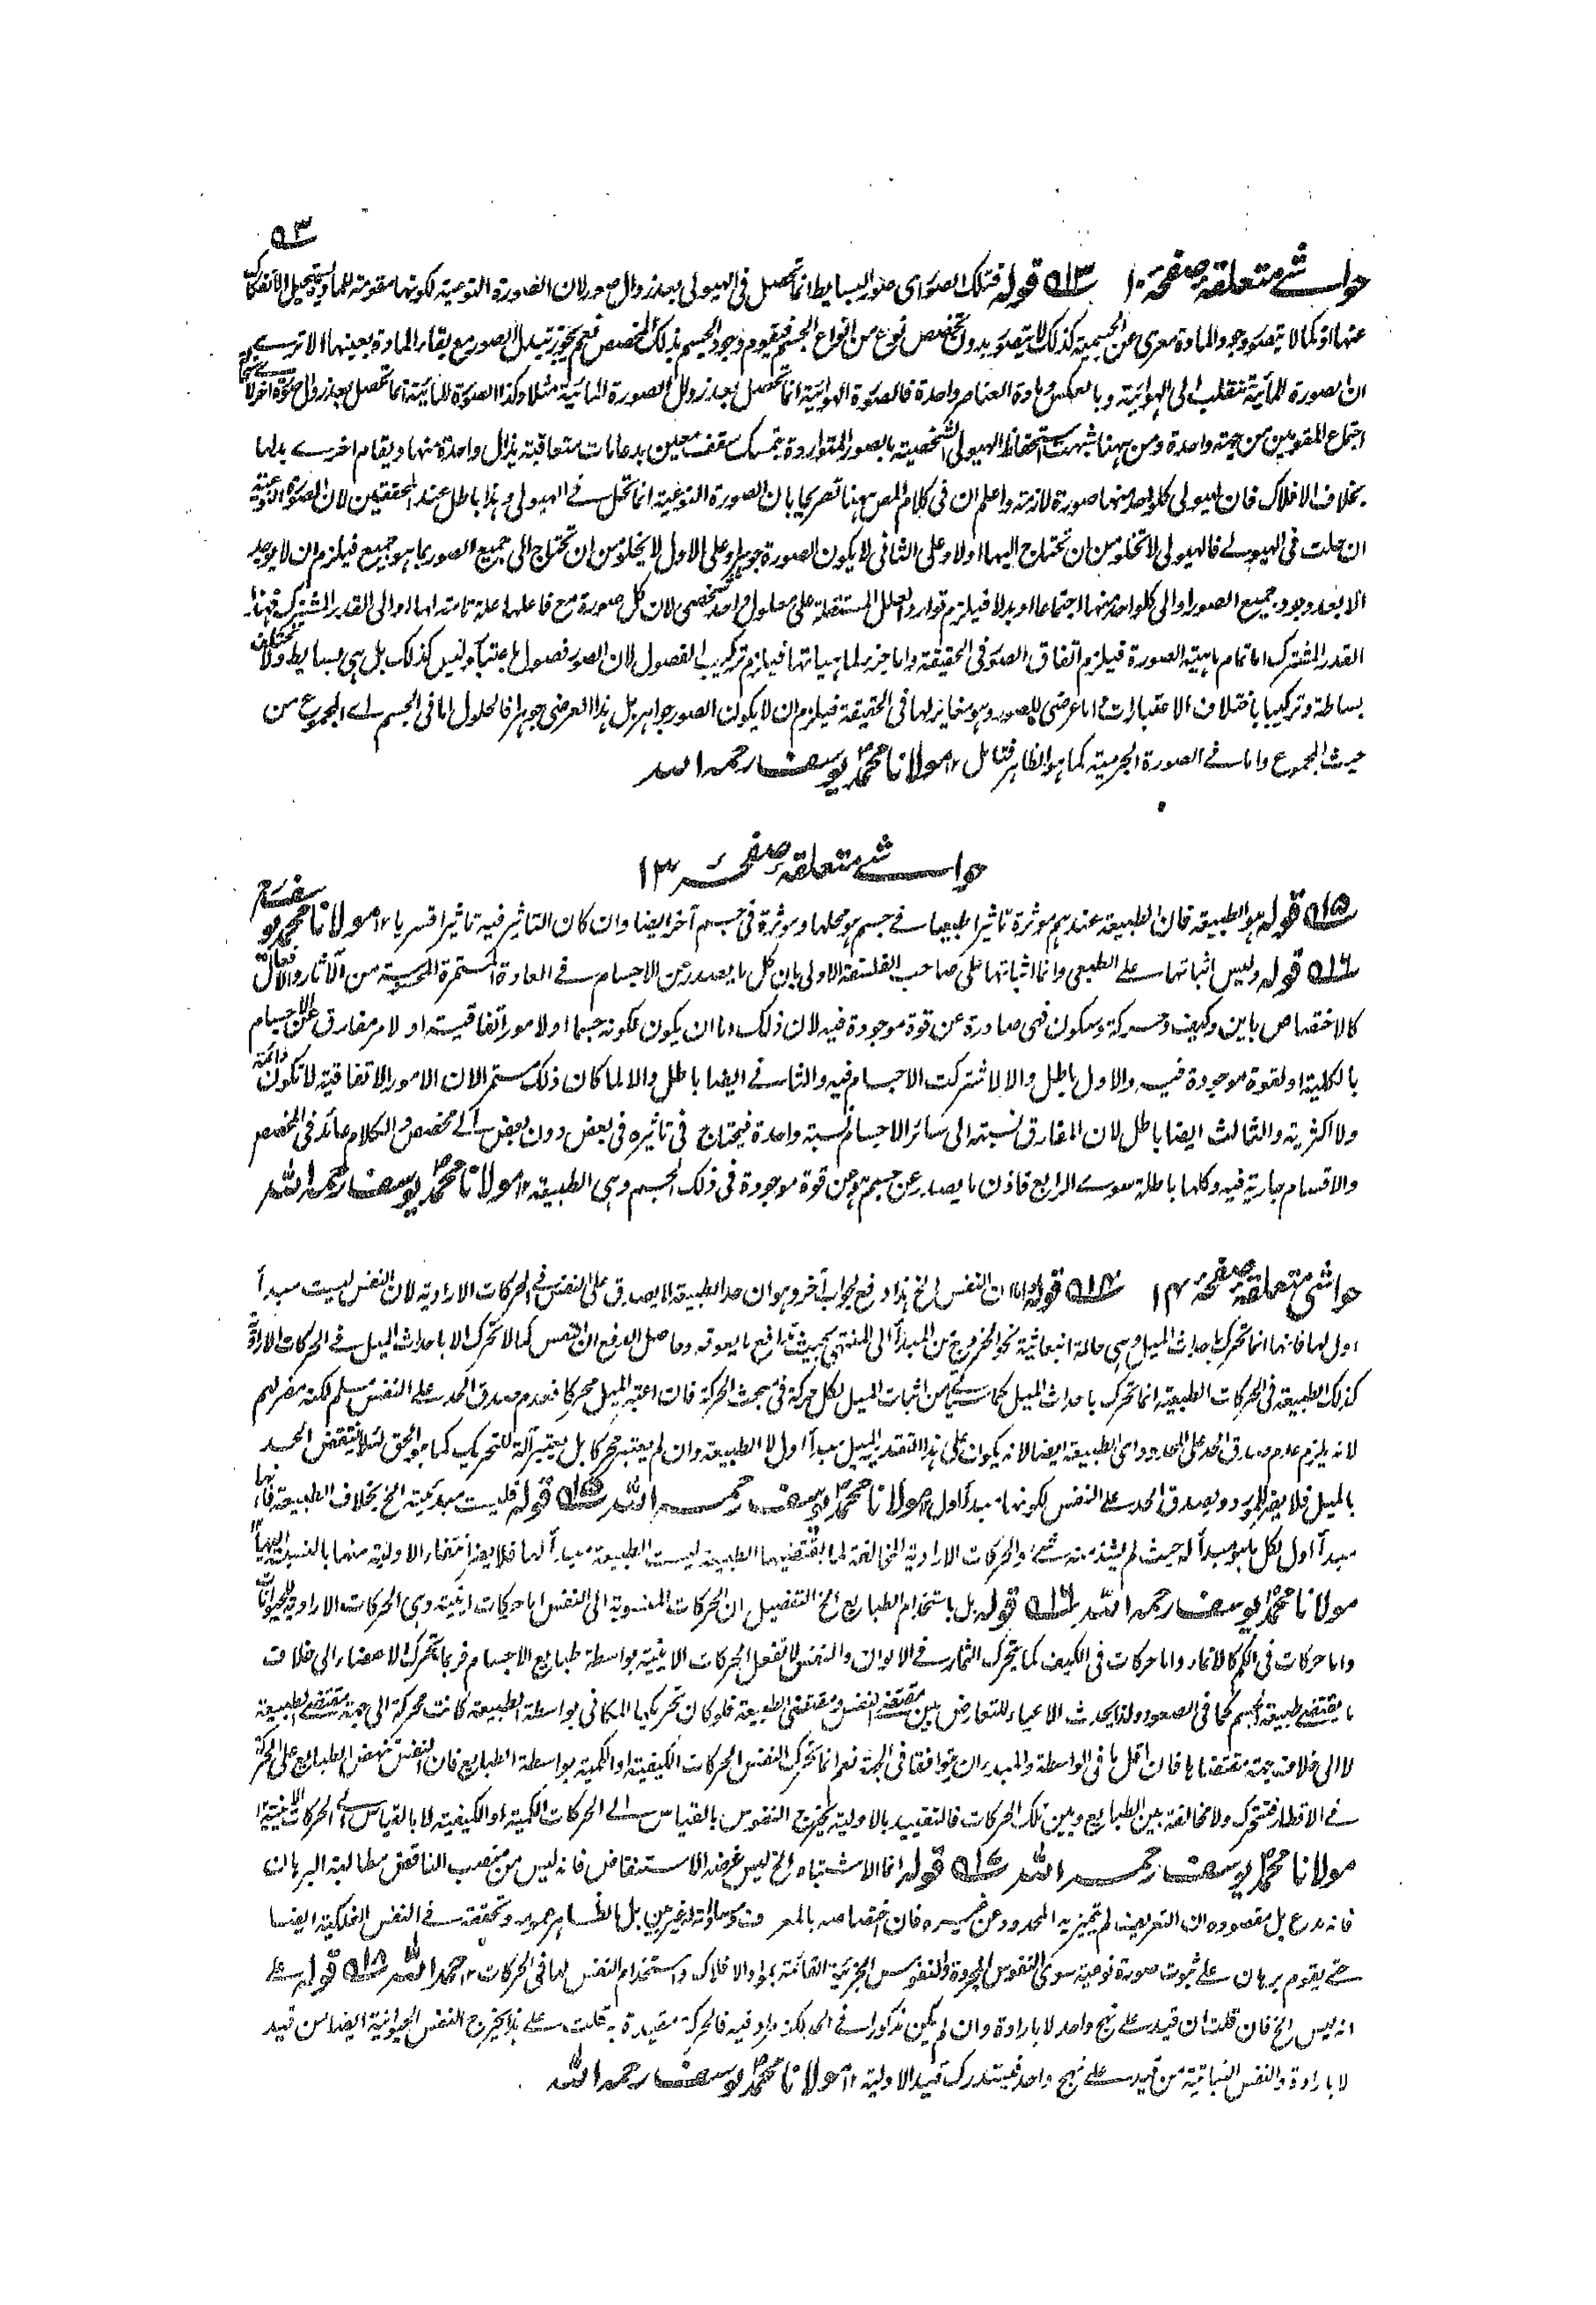 ٥٣
حواشے متعلقہ صفحہ ١٠ قوله فتلك الصور اى صور البسايط انما تحصل فى الهيولى بعد زوال صور لان الصورة النوعية لكونها مقومة للمادة يستحيل الانفكاك
عنها اذ كما لا يتصور وجود المادة معرى عن الجسمية كذلك لا يتصور بدون تخصص نوع من انواع الجسم فيقوم وجود الجسم بذلك المخصص نعم يجوز تبدل الصور مع بقاء المادة بعينها الا ترے
ان الصورة المائية تنقلب الى الهوائية وبالعكس ومادة العناصر واحدة فالصورة الهوائية انما تحصل بعد زوال الصورة المائية مثلا وكذا الصورة المائية انما تحصل بعد زوال صورة اخرى
اجتماع المقومين من جهة واحدة ومن ههنا شبهت استحفاظ الهيولى الشخصية بالصور المتواردة بتمسك سقف معين بدعامات متعاقبة يزال واحدة منها ويقام اخرے بدلها
بخلاف الافلاك فان هيولى كلواحد منها صورة لازمة واعلم ان فى كلام المص ههنا تصريحا بان الصورة النوعية انما تحل فے الهيولى وهذا باطل عند المحققين لان الصورة النوعية
ان حلت فى الهيولے فالهيولى لا تخلو من ان تحتاج اليها اولا وعلى الثانى لا يكون الصورة جوهرا وعلى الاول لا يخلو من ان تحتاج الى جميع الصور بما هو جميع فيلزم ان لا يوجد
الا بعد وجود جميع الصور او الى كلواحد منها اجتماعا او بدلا فيلزم توارد العلل المستقلة على معلول واحد شخصى لان كل صورة مع فاعلها علة تامة لها او الى القدر المشترك فهذا
القدر المشترك اما تمام ماهية الصورة فيلزم اتفاق الصور فى الحقيقة واما جزء لماهياتها فيلزم تركيب الفصول لان الصور فصول باعتبار وليس كذلك بل هى بسايط ولا تختلف
بساطة وتركيبا باختلاف الاعتبارات واما عرضى للصور وهو مغاير لها فى الحقيقة فيلزم ان لا يكون الصور جواهر بل هذا العرضى جوهرا فالحلول اما فى الجسم اے المجموع من
حيث المجموع واما فے الصورة الجرمية كما هو الظاهر فتامل ١٢ مولانا محمد يوسف رحمه الله
حواشے متعلقہ صفحہ ١٣
قوله هو الطبيعة فان الطبيعة عندهم موثرة تاثيرا طبيعيا فے جسم هو محلها وموثرة فى جسم آخر ايضا وان كان التاثير فيه تاثيرا قسريا ١٢ مولانا محمد يوسف رح
قوله وليس اثباتها على الطبيعى وانما اثباتها على صاحب الفلسفة الاولى بان كل ما يصدر عن الاجسام فے العادة المستمرة المحسوسة من الآثار والافعال
كالاختصاص باين وكيف وحركة وسكون فهى صادرة عن قوة موجودة فيه لان ذلك اما ان يكون لكونه جسما او لامور اتفاقية او لامر مفارق عن الاجسام
بالكلية او لقوة موجودة فيه والاول باطل والا لاشتركت الاجسام فيه والثانے ايضا باطل والا لما كان ذلك مستمرا لان الامور الاتفاقية لا تكون دائمة
ولا اكثرية والثالث ايضا باطل لان المفارق نسبته الى سائر الاجسام نسبة واحدة فيحتاج فى تاثيره فى بعض دون بعض الے مخصص والكلام عائد فى المخصص
والاقسام جارية فيه وكلها باطلة سوے الرابع فاذن ما يصدر عن جسم هو من قوة موجودة فى ذلك الجسم وهى الطبيعة ١٢ مولانا محمد يوسف رحمه الله
حواشى متعلقہ صفحہ ١٤ قوله اما ان النفس الخ هذا دفع لجواب آخر وهو ان حد الطبيعة لا يصدق على النفس فے الحركات الارادية لان النفس ليست مبدأ
اول لها فانها انما تحرك باحداث الميل وهى حالة انبعاثية نحو الخروج من المبدأ الى المنتهى بحيث تدافع ما يعوقه وحاصل الدفع ان النفس كما لا تحرك الا باحداث الميل فے الحركات الارادية
كذلك الطبيعة فى الحركات الطبيعية انما تحرك باحداث الميل كما سيأتى من اثبات الميل لكل حركة فى مبحث الحركة فان اعتبر الميل محركا فعدم صدق الحد على النفس مسلم لكنه مضر لهم
لانه يلزم عدم صدق الحد على المحدود اى الطبيعة ايضا لانه يكون على هذا التقدير الميل مبدأ اول لا الطبيعة وان لم يعتبر محركا بل يعتبر آلة للتحريك كما هو الحق لئلا ينتقض الحد
بالميل فلا يضر الايراد ويصدق الحد على النفس لكونها مبدأ اول ١٢ مولانا محمد يوسف رحمه الله قوله فليست مبدئيته الخ بخلاف الطبيعة فانها
مبدأ اول لكل ما هو مبدأ له حيث لم يشذ منه شئ والحركات الارادية المخالفة لما يقتضيها الطبيعة ليست الطبيعة مبدأ لها فلا يضر انتفاء الاولية منها بالنسبة اليها
مولانا محمد يوسف رحمه الله قوله بل باستخدام الطبايع الخ التفصيل ان الحركات المنسوبة الى النفس اما حركات اينية وهى الحركات الارادية للحيوانات
واما حركات فى الكم كالانماء واما حركات فى الكيف كما يتحرك الثمار فے الالوان والنفس لا تفعل الحركات الاينية بواسطة طبايع الاجسام فربما تحرك الاعضاء الى خلاف
ما يقتضے طبيعة الجسم كما فى الصعود ولذا يحدث الاعياء للتعارض بين مقتضے النفس ومقتضى الطبيعة فلو كان تحريكها المكانى بواسطة الطبيعة كانت محركة الى جهة مقتضے الطبيعة
لا الى خلاف جهة مقتضاها فان اقل ما فى الواسطة والمبدء ان يتوافقا فى الجهة نعم انما تحرك النفس الحركات الكيفية او الكمية بواسطة الطبايع فان النفس تنهض الطبايع على الحركة
فے الاقطار فتتحرك ولا مخالفة بين الطبايع وبين تلك الحركات فالتقييد بالاولية يخرج النفوس بالقياس الے الحركات الكمية او الكيفية لا بالقياس الے الحركات الاينية ١٢
مولانا محمد يوسف رحمه الله قوله انما الاشتباه الخ ليس غرضه الاستنقاض فانه ليس من منصب الناقض مطالبة البرهان
فانه مدع بل مقصوده ان التعريف لم يتميز به المحدود عن غيره فان اختصاصه بالمعرف ومساواته له غير مبين بل الظاهر عمومه وتحققه فے النفس الفلكية ايضا
حتے يقوم برهان علے ثبوت صورة نوعية سوى النفوس المجردة والنفوس الجزئية القائمة بمواد الافلاك واستخدام النفس لها فى الحركات ١٢ رحمه الله قوله علے
انه ليس الخ فان قلت ان قيد علے نهج واحد لا بارادة وان لم يكن مذكورا فے الحد لكنه مراد فيه فالحركة مقيدة به قلت علے هذا يخرج النفس الحيوانية ايضا من قيد
لا بارادة والنفس النباتية من قيد علے نهج واحد فيستدرك قيد الاولية ١٢ مولانا محمد يوسف رحمه الله